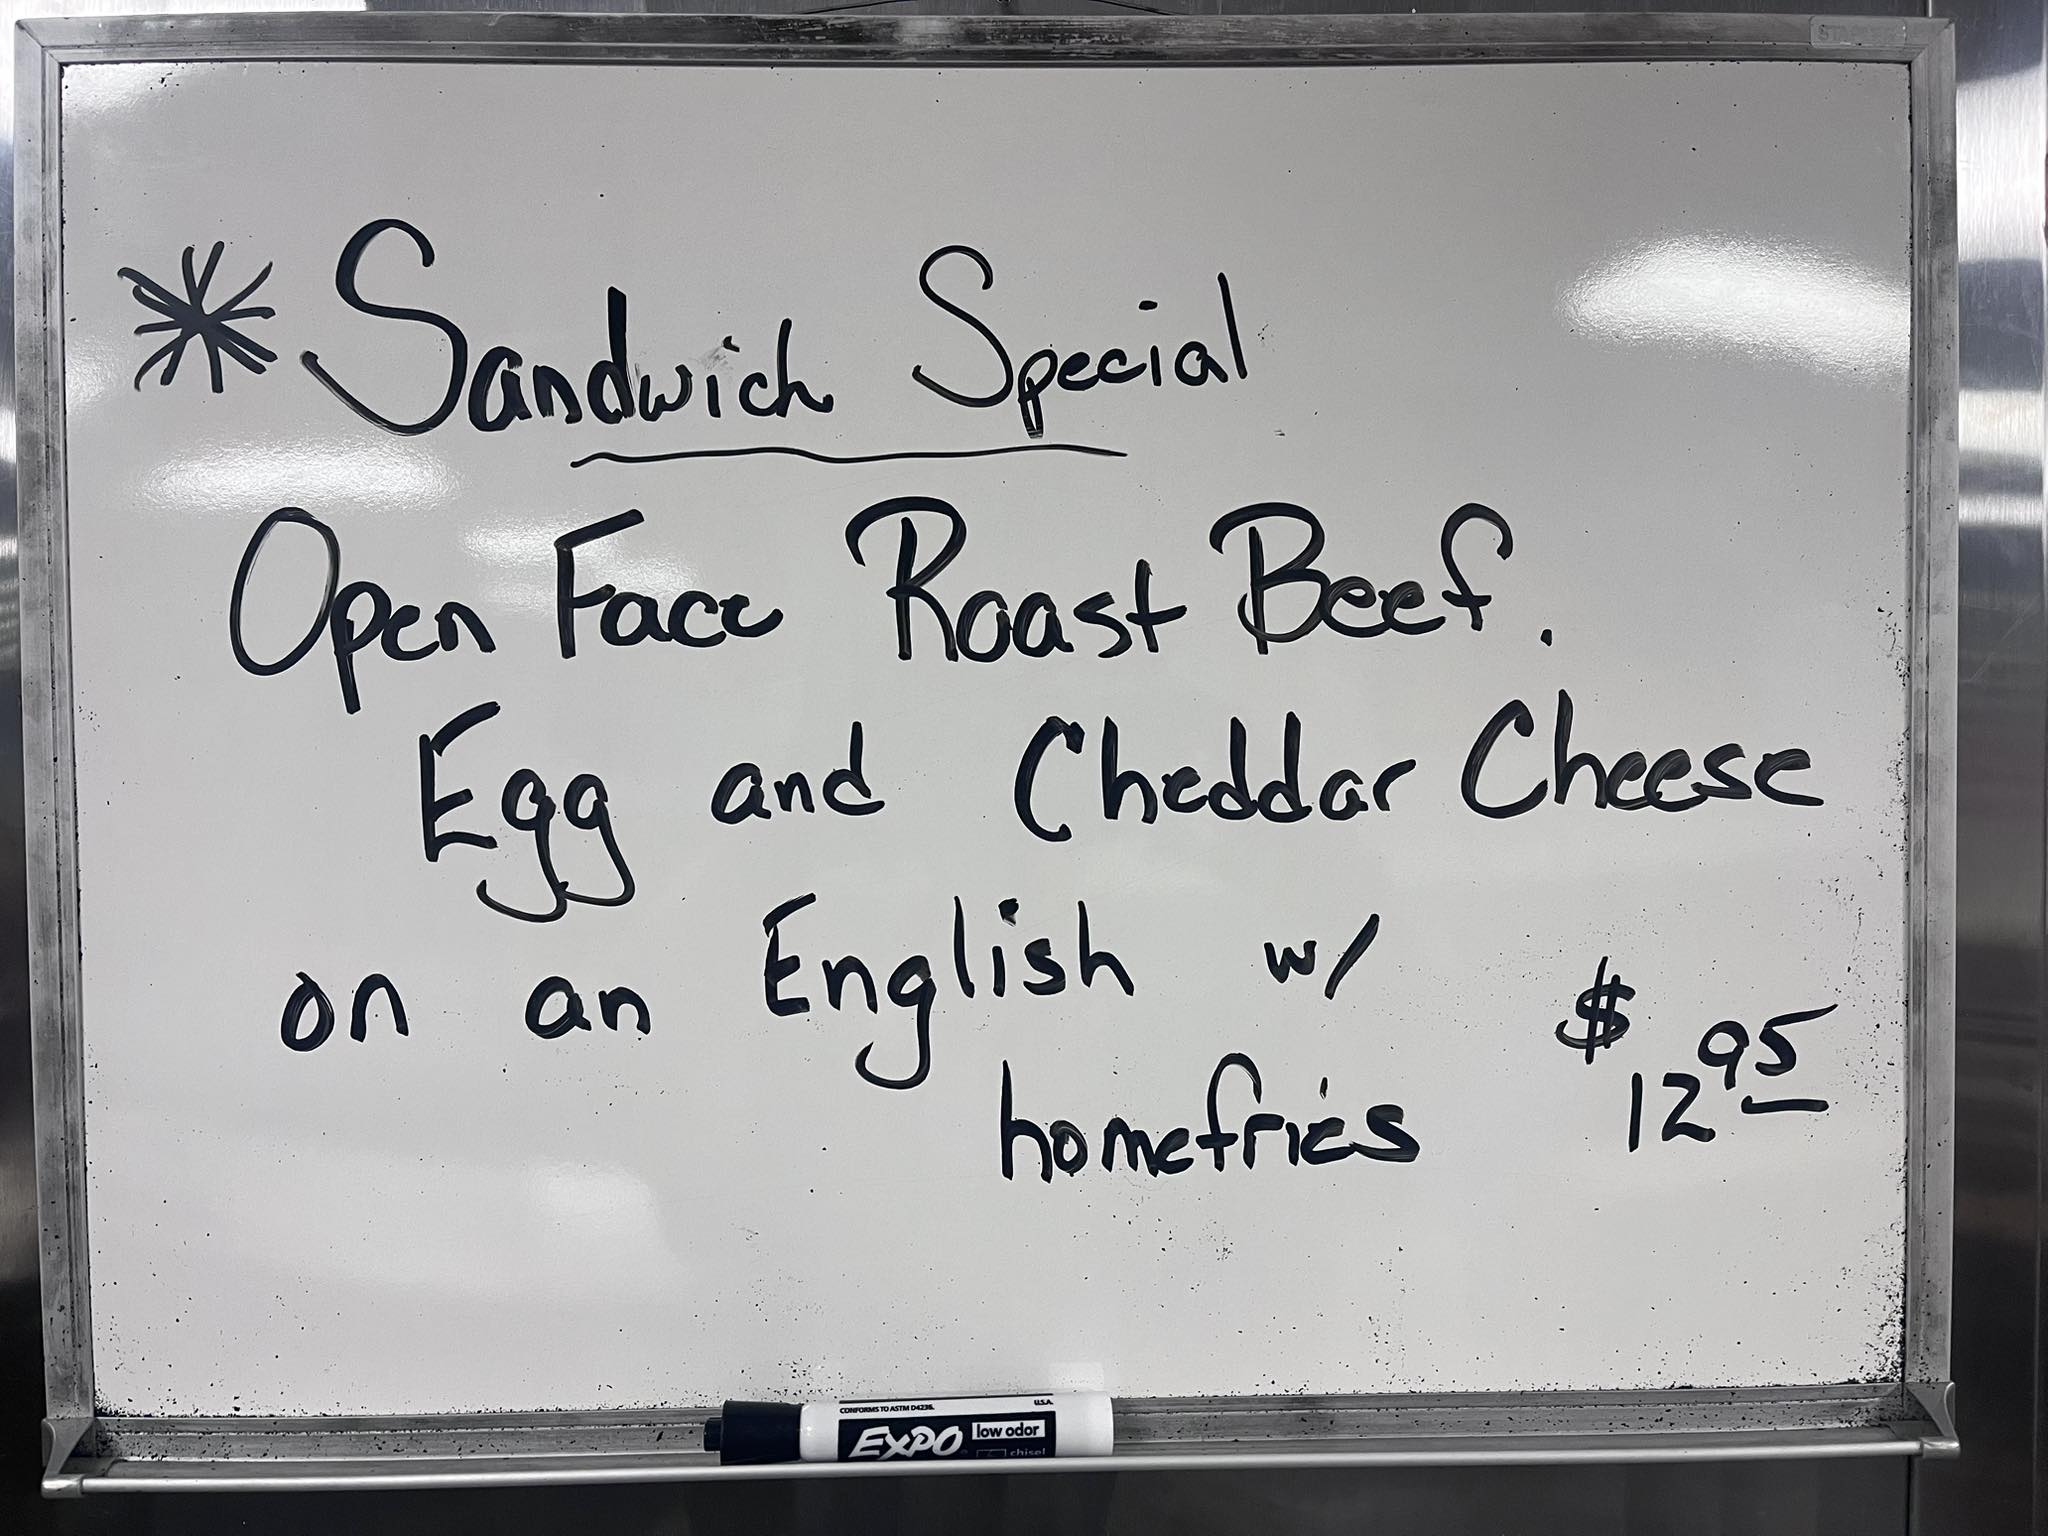 * Sandwich Special
Open Face Roast Beef.
Egg and Cheddar Cheese
on an English w/
homefries
$12.95
CONFORMS TO ASTM D4236. U.S.A.
EXPO low odor
chisel